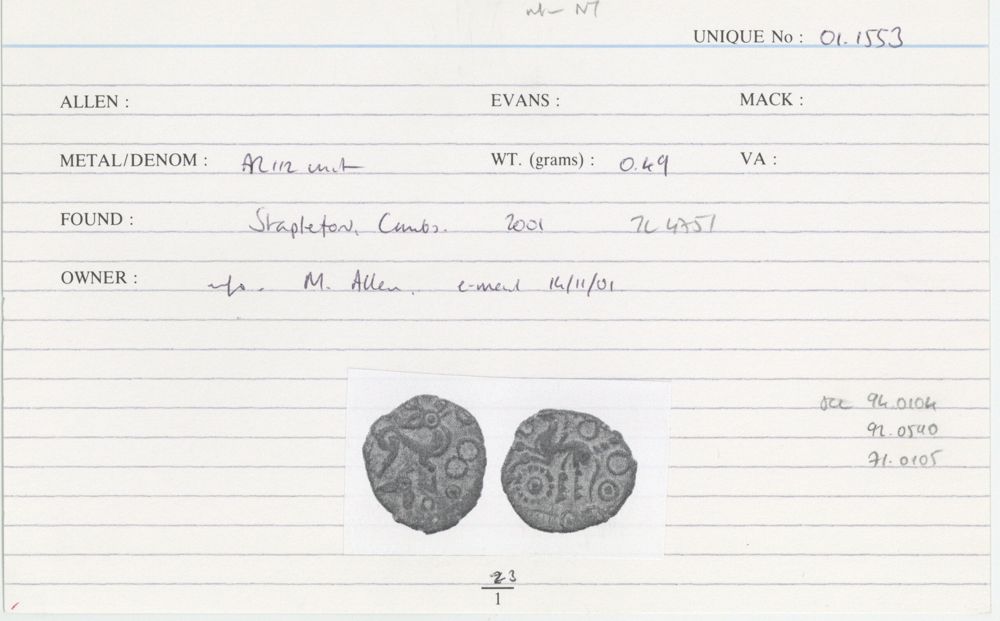 UNIQUE No : 01.1553
ALLEN : EVANS : MACK :
METAL/DENOM : AR 1/2 unit WT. (grams) : 0.49 VA :
FOUND : Stapleton, Cambs. 2001 TL 4751
OWNER : info. M. Allen, e-mail 14/11/01
see 94.0104
92.0540
71.0105
23
1